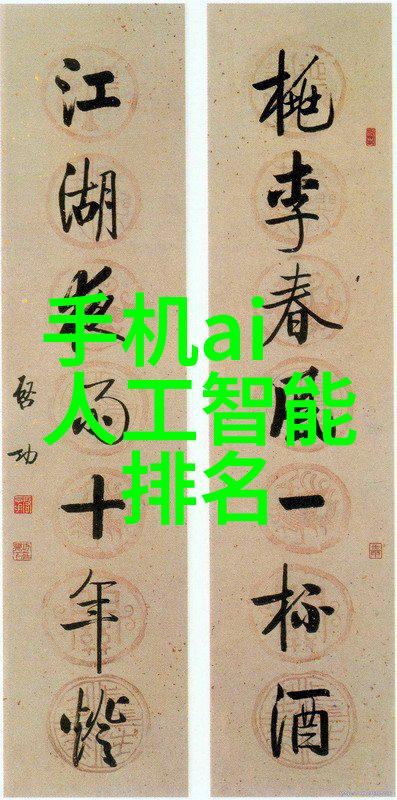 桃李春風一杯酒
江湖夜雨十年燈
啓功
手机ai
人工智能
排名